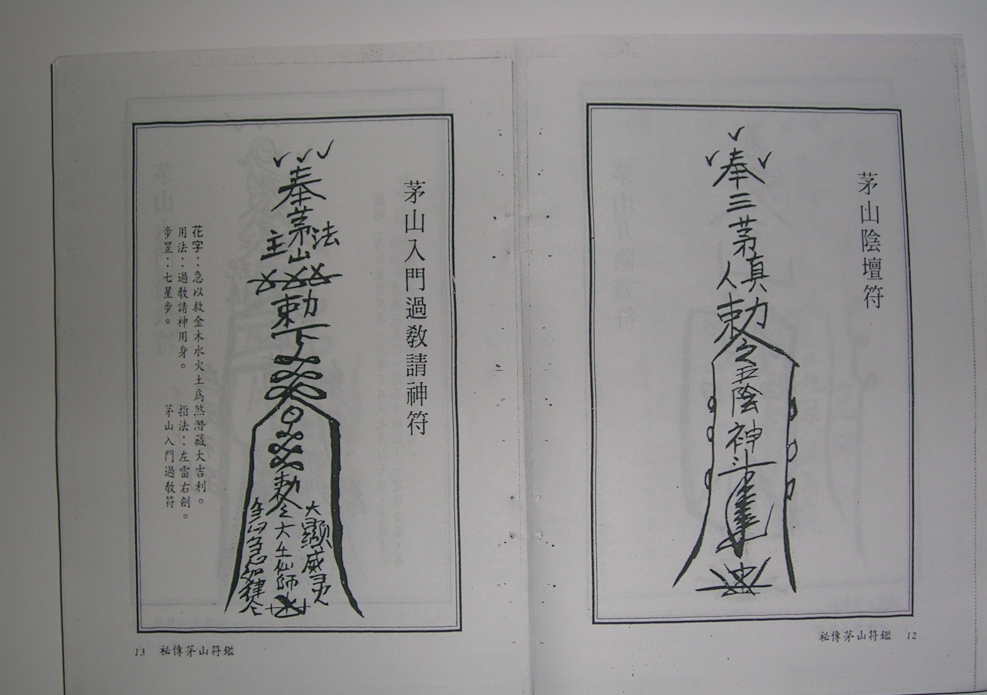 茅山陰壇符
奉三茅真人
敕令五陰神
秘傳茅山符鑑 12
茅山入門過教請神符
奉茅山法主
敕下
敕令大士仙師
大顯威灵
急急如律令
花字：急以敕金木水火土為煞潛藏大吉利。
用法：過教請神用身。 指法：左雷右劍。
步罡：七星步。 茅山入門過教符
13 秘傳茅山符鑑